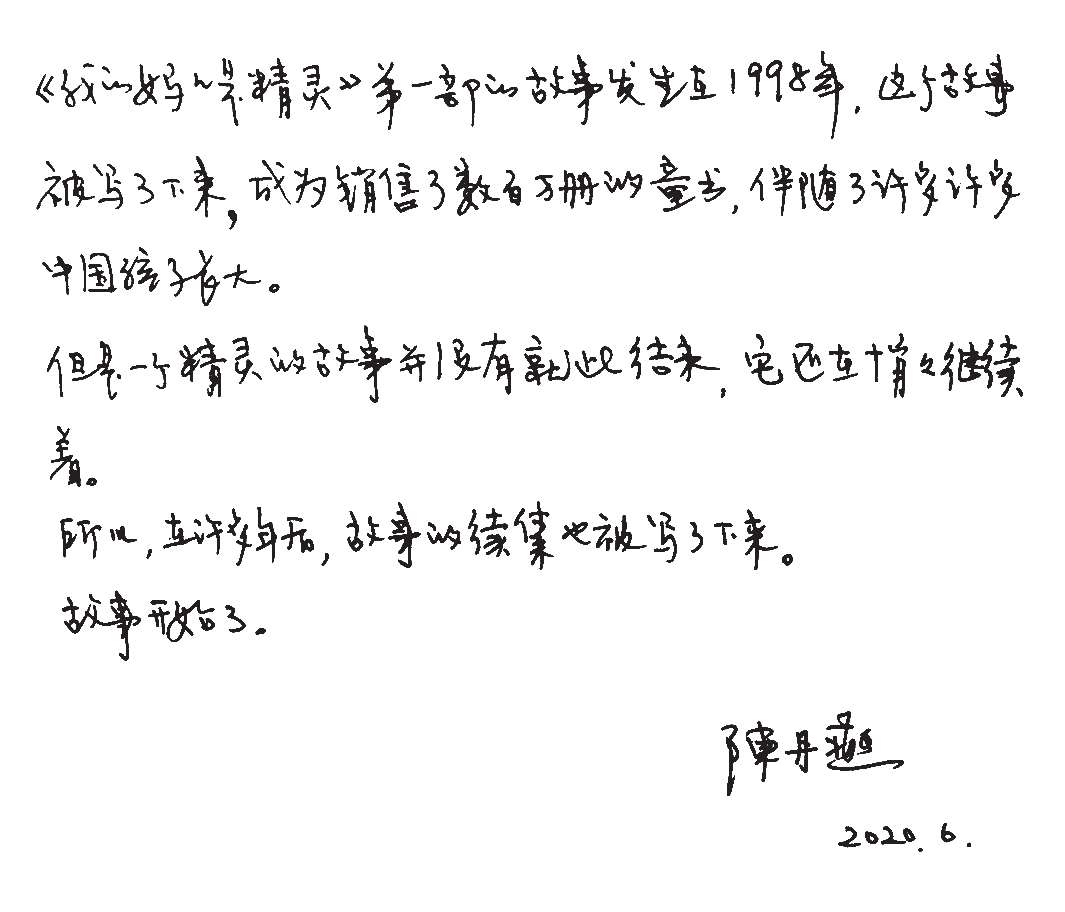 《我的妈妈是精灵》第一部的故事发生在1998年，这个故事
被写了下来，成为销售了数百万册的童书，伴随了许多许多
中国孩子长大。
但是一个精灵的故事并没有就此结束，它还在悄悄继续
着。
所以，在许多年后，故事的续集也被写了下来。
故事开始了。
陳丹燕
2020.6.